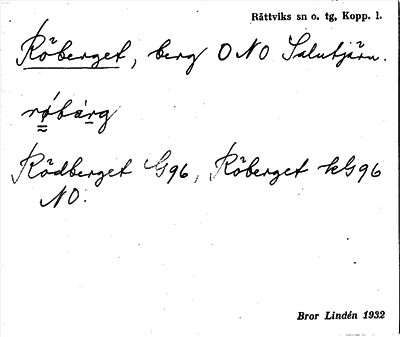 Rättviks sn o. tg, Kopp. l.
Röberget, berg ONO Salutjärn.
røbàrg
Rödberget G96, Röberget kG96
NO.
Bror Lindén 1932